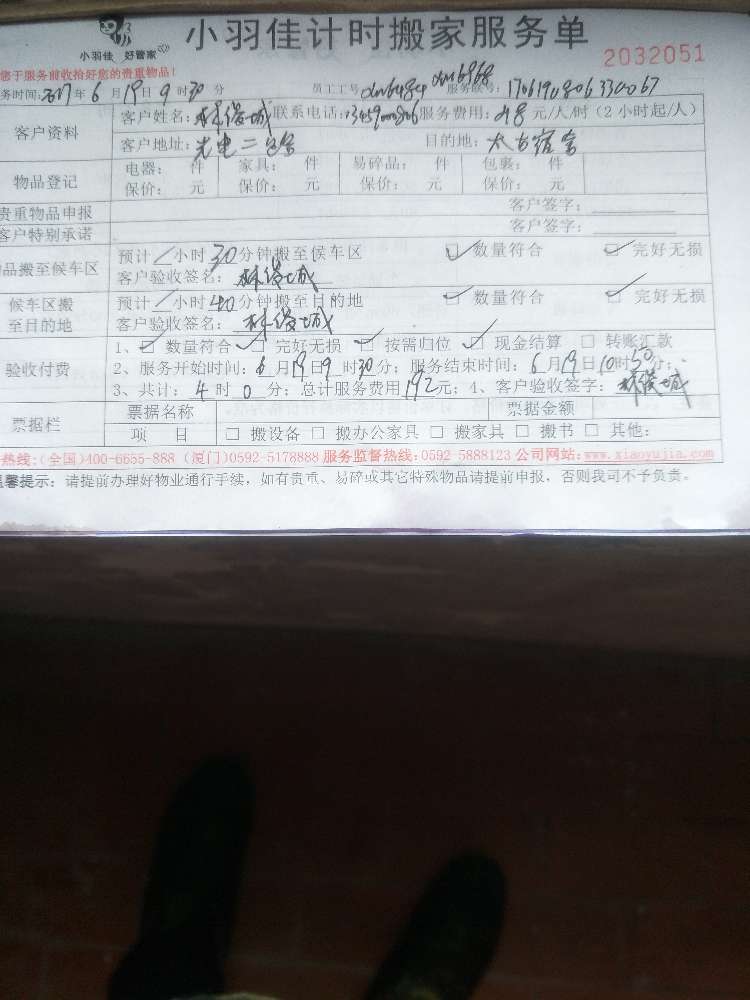 小羽佳 好管家
小羽佳计时搬家服务单
2032051
您于服务前收拾好您的贵重物品!
务时间:2017年6月19日9时30分 员工工号 服务账号:
客户资料 客户姓名: 联系电话:13459000806 服务费用:48元/人/时(2小时起/人)
客户地址:光电二宿舍 目的地:太古宿舍
物品登记 电器: 件 家具: 件 易碎品: 件 包裹: 件
保价: 元 保价: 元 保价: 元 保价: 元
贵重物品申报 客户签字:
客户特别承诺 客户签字:
品搬至候车区 预计/小时30分钟搬至候车区 ☑数量符合 ☑完好无损
客户验收签名:
候车区搬至目的地 预计/小时40分钟搬至目的地 ☑数量符合 ☑完好无损
客户验收签名:
验收付费 1、☑数量符合 ☑完好无损 ☑按需归位 ☑现金结算 □转账汇款
2、服务开始时间:6月19日9时30分;服务结束时间:6月19日10时50分;
3、共计:4时0分;总计服务费用192元;4、客户验收签字:
票据栏 票据名称 票据金额
项 目 □搬设备 □搬办公家具 □搬家具 □搬书 □其他:
热线:(全国)400-6655-888 (厦门)0592-5178888 服务监督热线:0592-5888123 公司网站:www.xiaoyujia.com
温馨提示:请提前办理好物业通行手续,如有贵重、易碎或其它特殊物品请提前申报,否则我司不予负责。